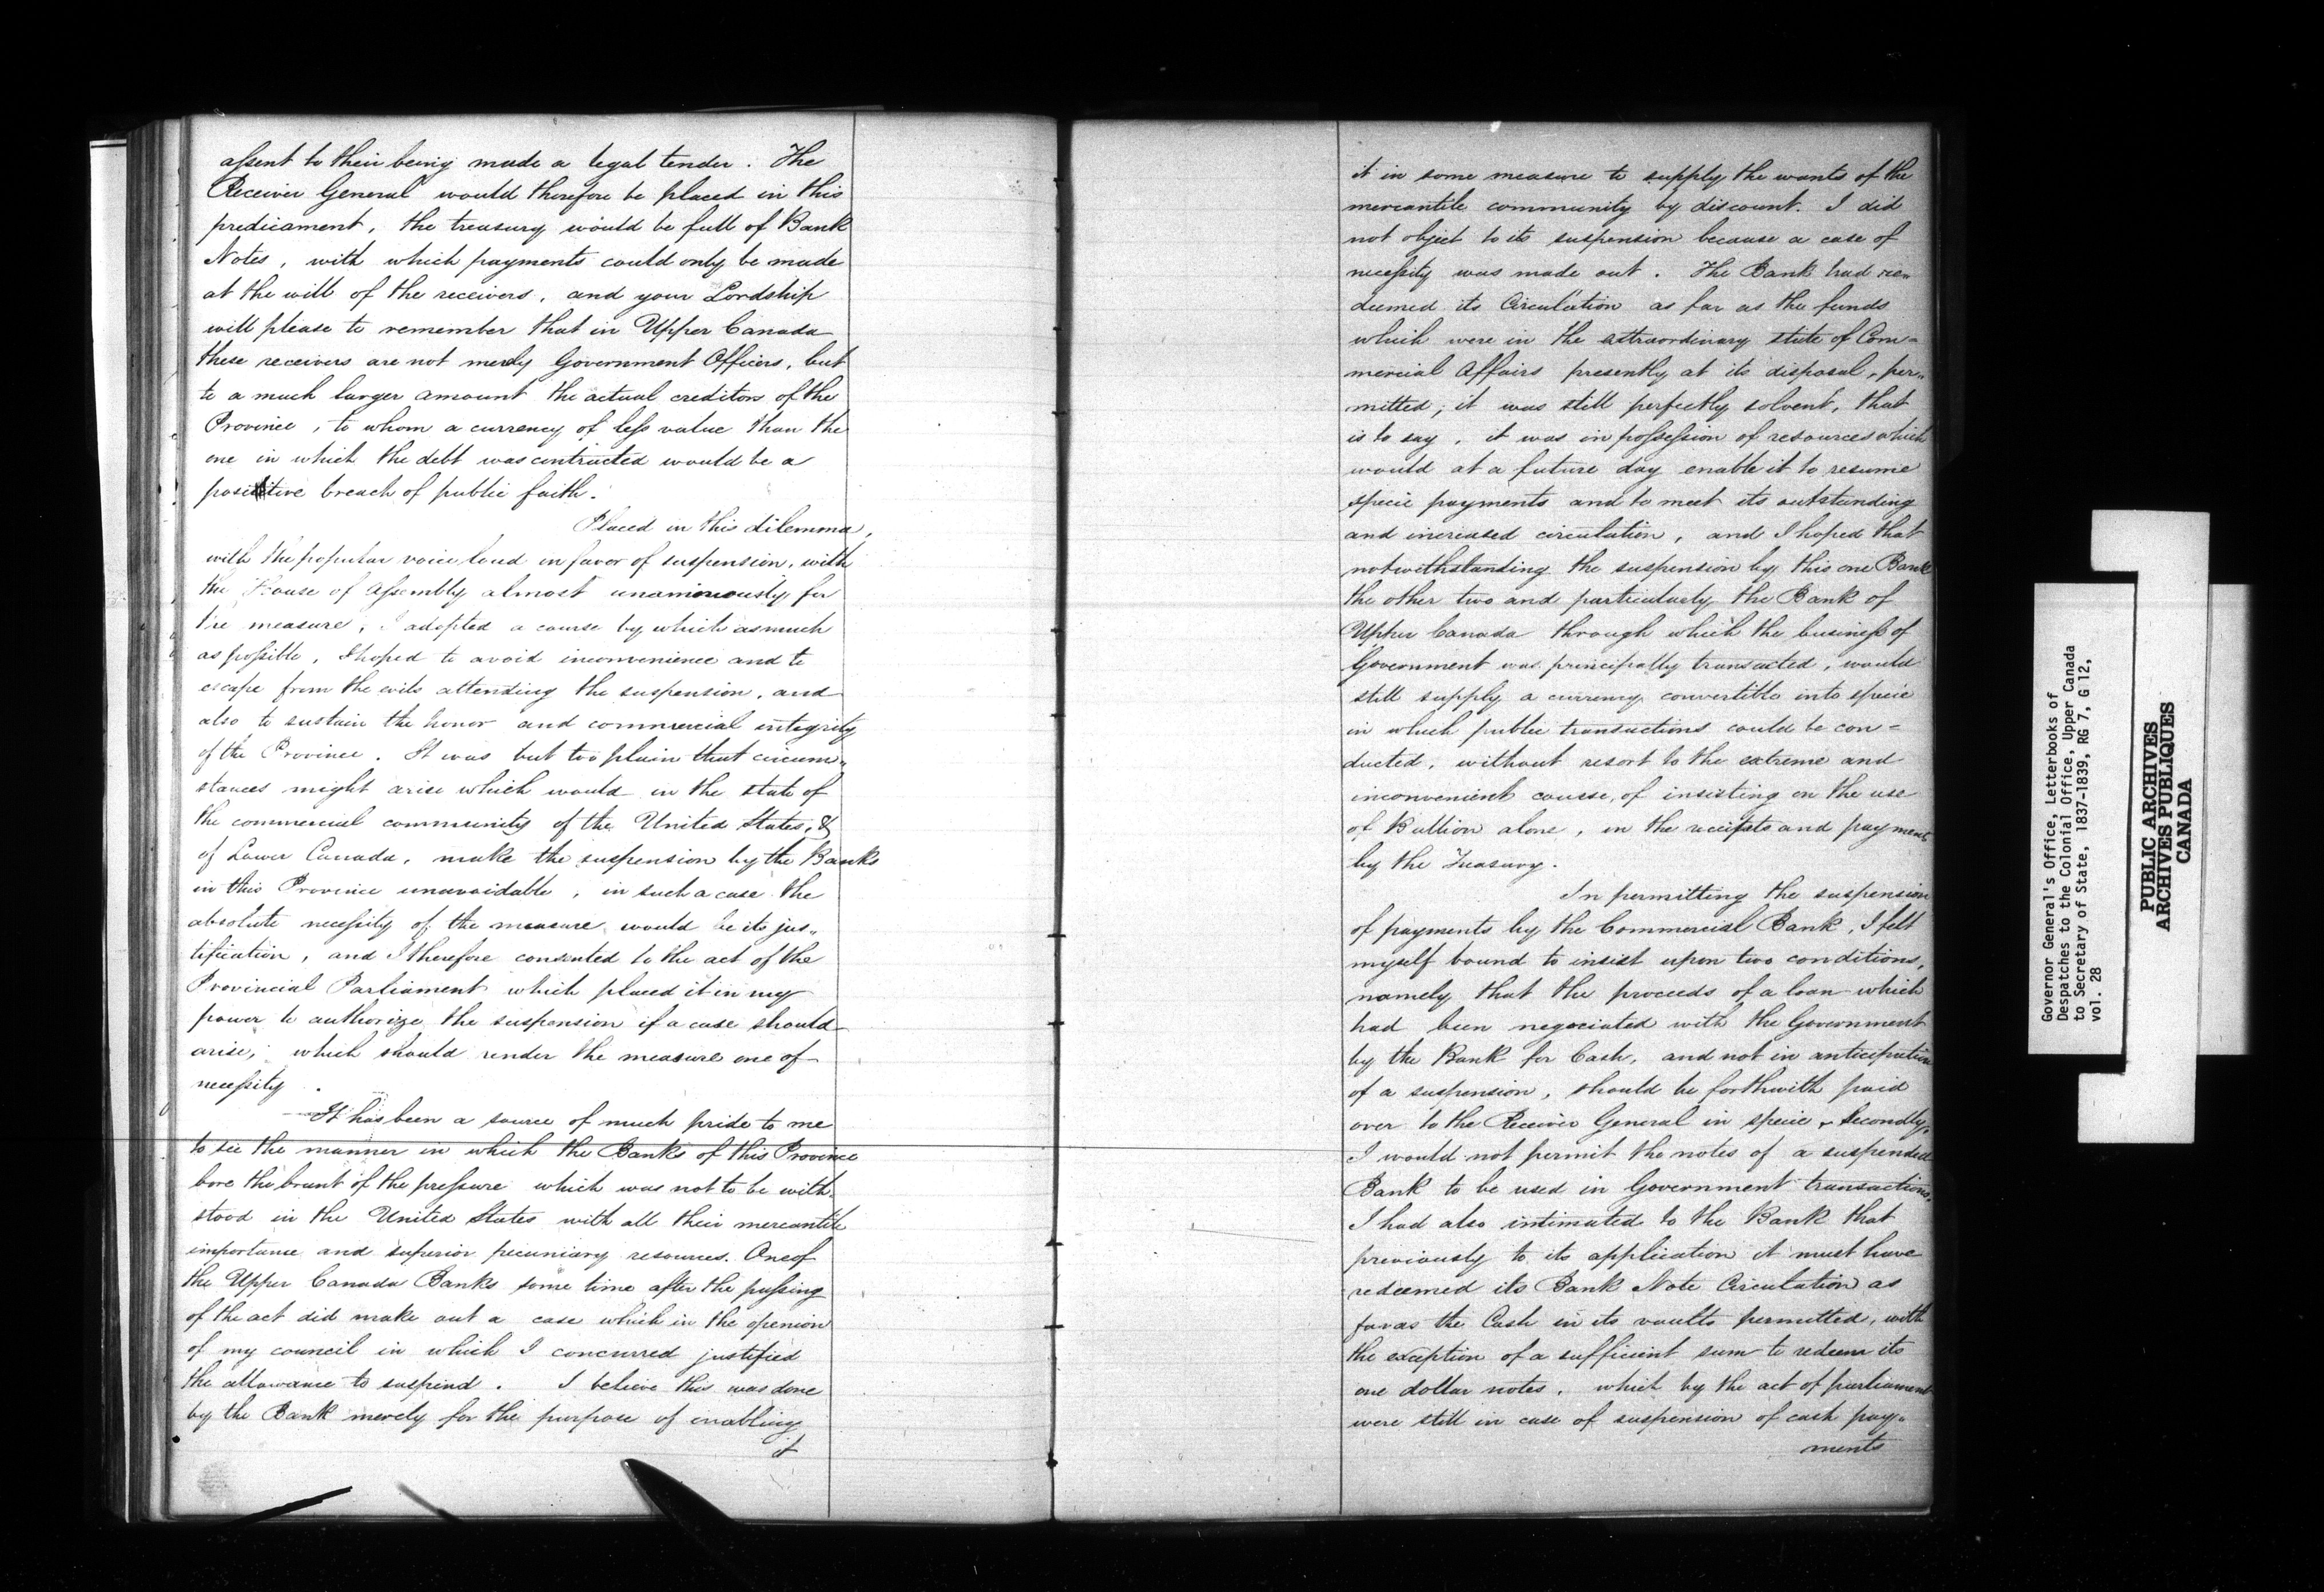 assent to their being made a legal tender. The
Receiver General would therefore be placed in this
predicament, the treasury would be full of Bank
Notes, with which payments could only be made
at the will of the receivers, and your Lordship
will please to remember that in Upper Canada
these receivers are not merely Government Officers, but
to a much larger amount the actual creditors of the
Province, to whom a currency of less value than the
one in which the debt was contracted would be a
positive breach of public faith.
Placed in this dilemma,
with the popular voice loud in favor of suspension, with
the House of Assembly almost unanimously for
the measure, I adopted a course by which as much
as possible, I hoped to avoid inconvenience and to
escape from the evils attending the suspension, and
also to sustain the honor and commercial integrity
of the Province. It was but too plain that circum-
stances might arise which would in the state of
the commercial community of the United States, &
of Lower Canada, make the suspension by the Banks
in this Province unavoidable, in such a case the
absolute necessity of the measure would be its jus-
tification, and I therefore consented to the act of the
Provincial Parliament which placed it in my
power to authorize the suspension if a case should
arise, which should render the measure one of
necessity.
It has been a source of much pride to me
to see the manner in which the Banks of this Province
bore the brunt of the pressure which was not to be with-
stood in the United States with all their mercantile
importance and superior pecuniary resources. One of
the Upper Canada Banks some time after the passing
of the act did make out a case which in the openion
of my council in which I concurred justified
the allowance to suspend. I believe this was done
by the Bank merely for the purpose of enabling
it
it in some measure to supply the wants of the
mercantile community by discount. I did
not object to its suspension because a case of
necessity was made out. The Bank had re-
deemed its Circulation as far as the funds
which were in the extraordinary state of Com-
mercial Affairs presently at its disposal, per-
mitted; it was still perfectly solvent, that
is to say, it was in possession of resources which
would at a future day enable it to resume
specie payments and to meet its outstanding
and increased circulation, and I hoped that
notwithstanding the suspension by this one Bank
the other two and particularly the Bank of
Upper Canada through which the business of
Government was principally transacted, would
still supply a currency convertible into specie
in which public transactions could be con-
ducted, without resort to the extreme and
inconvenient course, of insisting on the use
of Bullion alone, in the receipts and payments
by the Treasury.
In permitting the suspension
of payments by the Commercial Bank, I felt
myself bound to insist upon two conditions,
namely that the proceeds of a loan which
had been negociated with the Government
by the Bank for Cash, and not in anticipation
of a suspension, should be forthwith paid
over to the Receiver General in specie & Secondly,
I would not permit the notes of a suspended
Bank to be used in Government transactions.
I had also intimated to the Bank that
previously to its application it must have
redeemed its Bank Note Circulation as
far as the Cash in its vaults permitted, with
the exception of a sufficient sum to redeem its
one dollar notes, which by the act of parliament
were still in case of suspension of cash pay-
ments
Governor General's Office, Letterbooks of
Despatches to the Colonial Office, Upper Canada
to Secretary of State, 1837-1839, RG 7, G 12,
vol. 28
PUBLIC ARCHIVES
ARCHIVES PUBLIQUES
CANADA